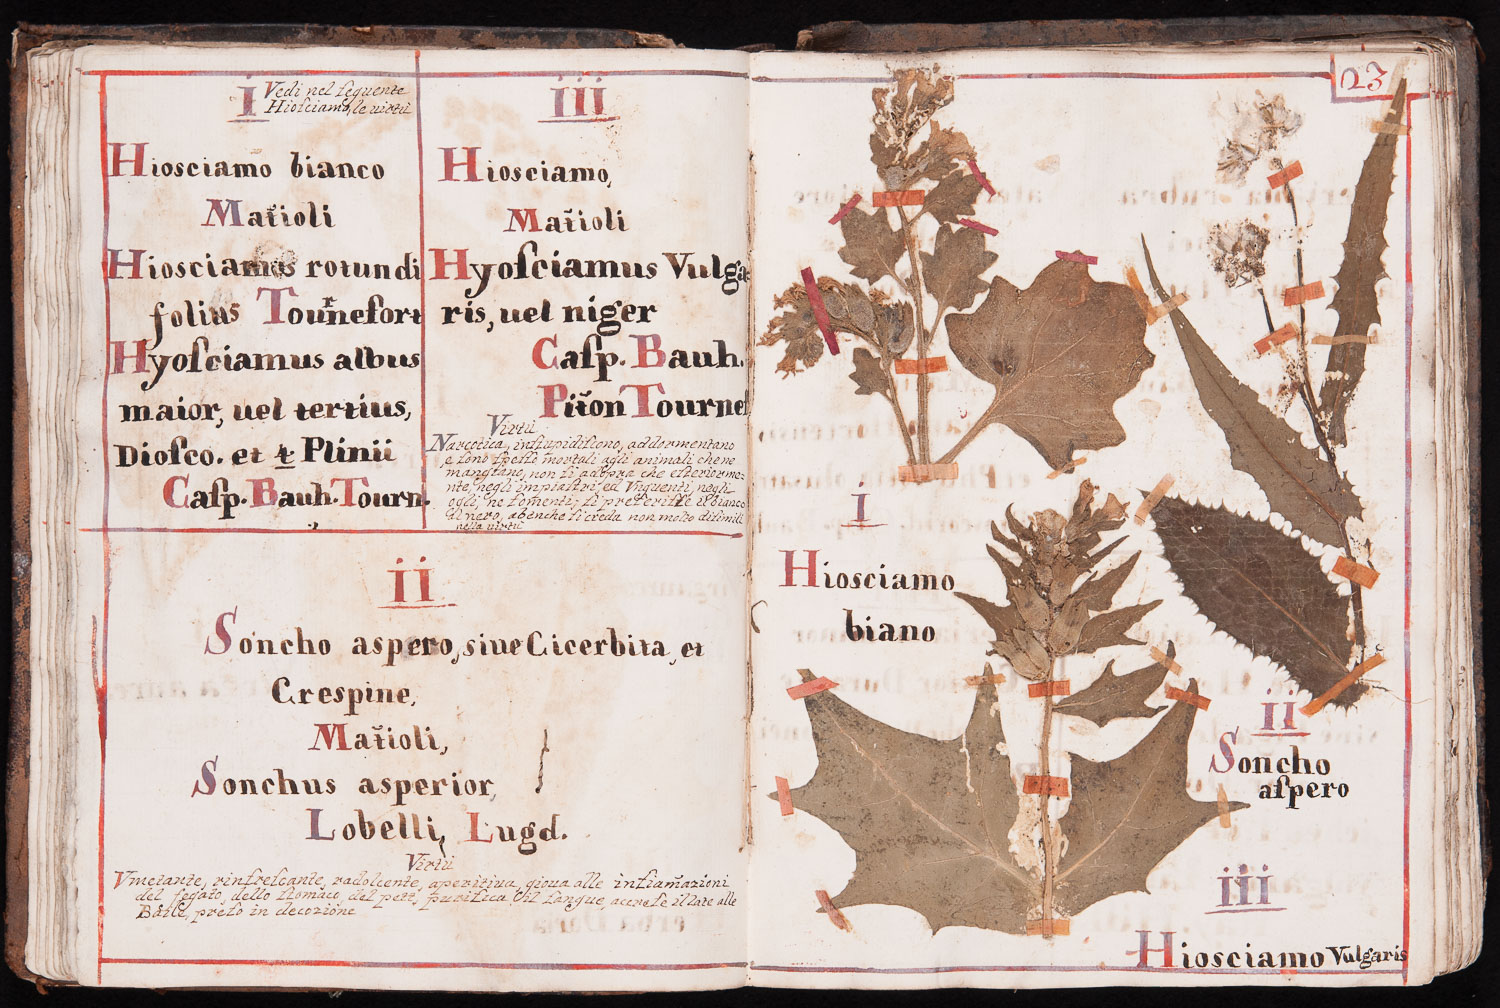 i
Vedi nel sequente
Hiosciamo, le virtù
Hiosciamo bianco
Matioli
Hiosciamus rotundi
folius Tournefort
Hyosciamus albus
maior, uel tertius,
Diosco. et Plinii
Casp. Bauh. Tourn.
iii
Hiosciamo,
Matioli
Hyosciamus Vulga
ris, uel niger
Casp. Bauh.
Piton Tournef
Virtù
Narcotica, instupidiscono, addormentano
e sono spesso mortali agli animali che ne
mangiano, non si adopre che esteriorme-
nte, negli impiastri, ed Vnguenti, negli
ogli, ne fomenti, si preferisce il bianco
al nero, abenche si creda non molto disimili
nella virtù
ii
Soncho aspero, siue Cicerbita, et
Crespine,
Matioli,
Sonchus asperior,
Lobelli, Lugd.
Virtù
Vmetante, rinfrescante, radolcente, aperitiua, gioua alle infiamazioni
del fegato, dello stomaco, del pete, purifica il sangue acresce il late alle
Balie, preso in decozione
23
I
Hiosciamo
biano
ii
Soncho
aspero
iii
Hiosciamo Vulgaris